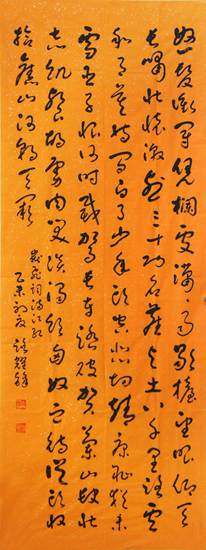 怒髮衝冠憑欄處瀟瀟雨歇抬望眼仰天
長嘯壯懷激烈三十功名塵與土八千里路雲
和月莫等閒白了少年頭空悲切靖康恥猶未
雪臣子恨何時滅駕長車踏破賀蘭山缺壯
志飢餐胡虜肉笑談渴飲匈奴血待從頭收
拾舊山河朝天闕
岳飛詞滿江紅
乙未初夏